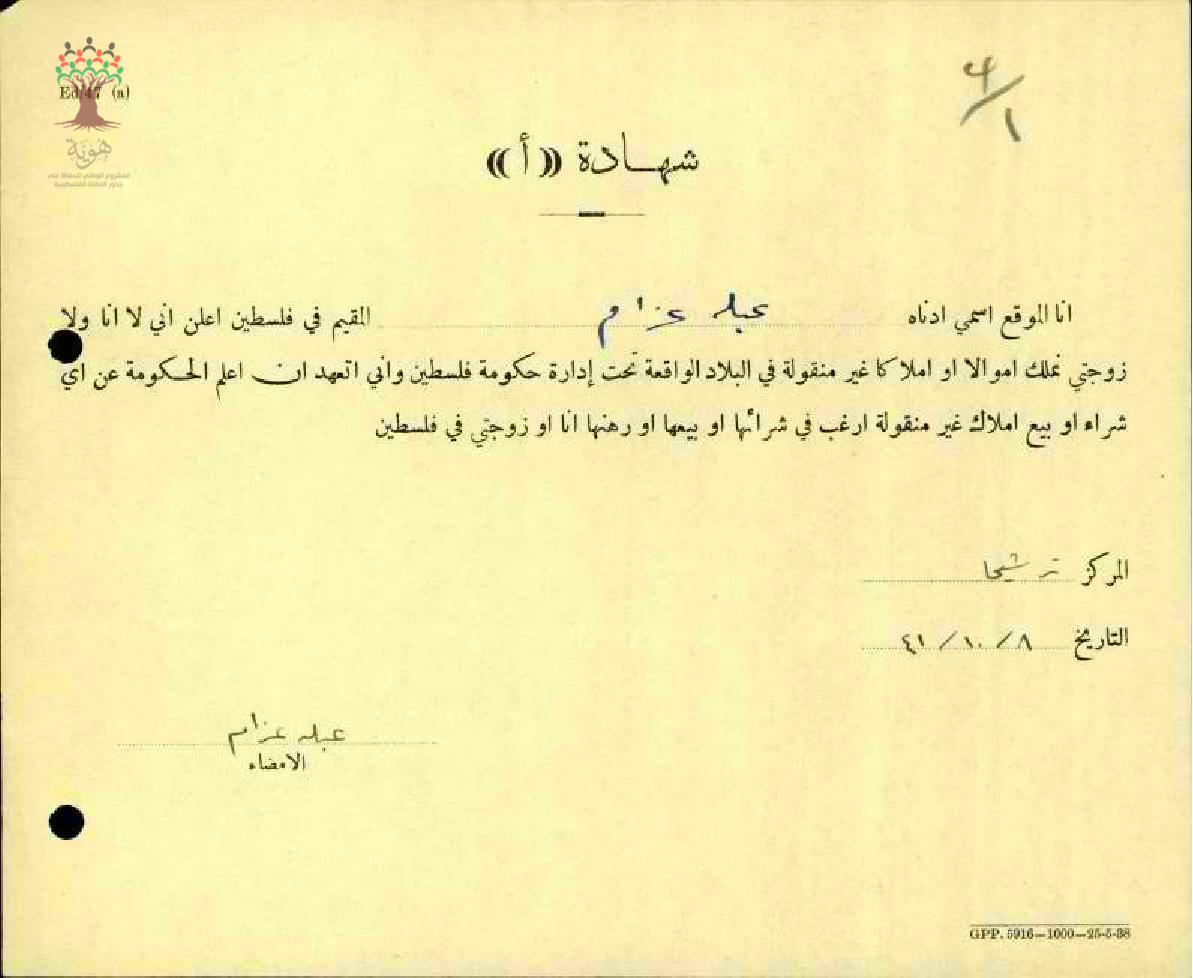 Ed/47 (a)
هوية
المشروع الوطني للحفاظ على
جذور العائلة الفلسطينية
٤/١
شهادة «أ»
انا الموقع اسمي ادناه عبله عزام المقيم في فلسطين اعلن اني لا انا ولا
زوجتي نملك اموالا او املاكا غير منقولة في البلاد الواقعة تحت إدارة حكومة فلسطين واني اتعهد ان اعلم الحكومة عن اي
شراء او بيع املاك غير منقولة ارغب في شرائها او بيعها او رهنها انا او زوجتي في فلسطين
المركز ترشيحا
التاريخ ٨/١٠/٤١
عبله عزام
الامضاء
GPP. 5916—1000—25-5-38